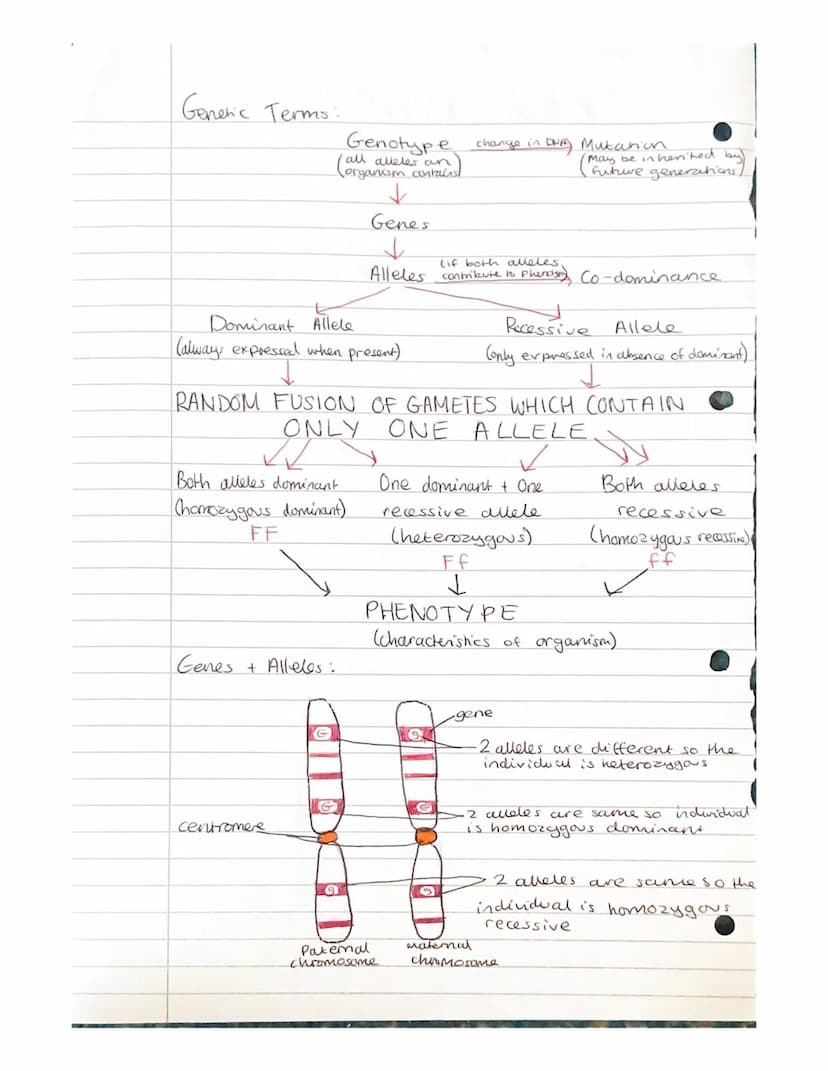 Genetic Terms:
Genotype change in DNA Mutation
(all alleles an organism contains) (may be inherited by future generations)
Genes
(if both alleles
Alleles contribute to phenotype) Co-dominance
Dominant Allele Recessive Allele
(always expressed when present) (only expressed in absence of dominant)
RANDOM FUSION OF GAMETES WHICH CONTAIN
ONLY ONE ALLELE
Both alleles dominant One dominant + One Both alleles
(homozygous dominant) recessive allele recessive
FF (heterozygous) (homozygous recessive)
Ff ff
PHENOTYPE
(characteristics of organism)
Genes + Alleles:
gene
G g
2 alleles are different so the
individual is heterozygous
G G
2 alleles are same so individual
is homozygous dominant
centromere
g g
2 alleles are same so the
individual is homozygous
recessive
Paternal chromosome
Maternal chromosome